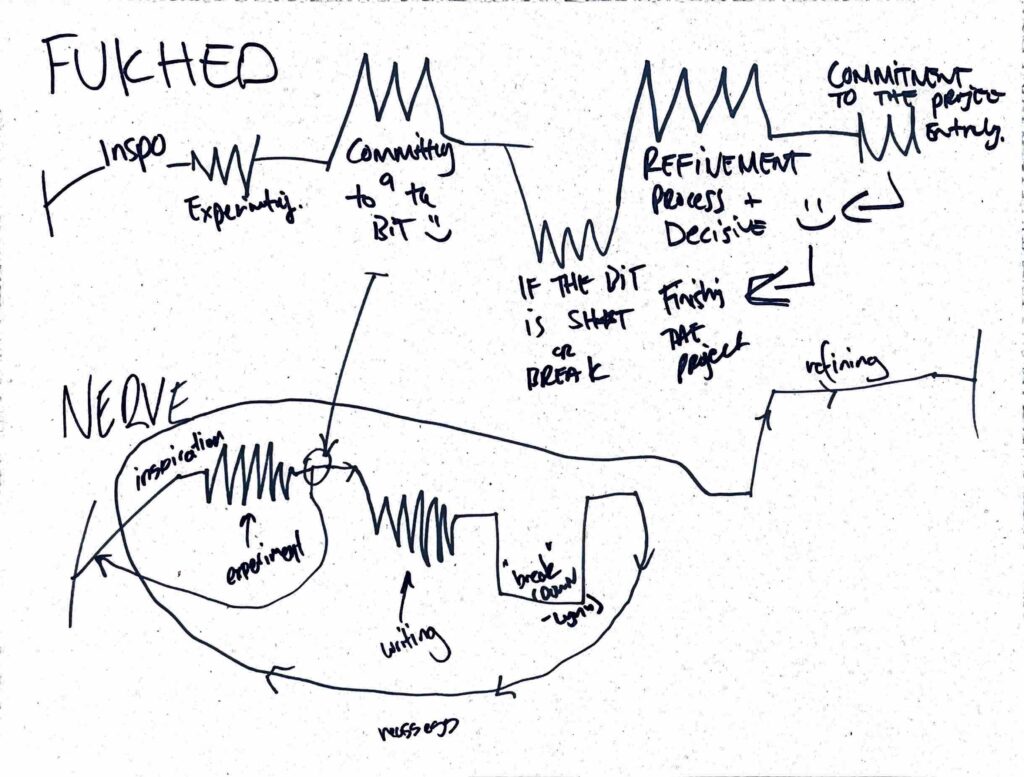 FUKHED
Inspo
Experimenting.
Committing
to a
BIT
IF THE BIT
is SH*T
OR
BREAK
REFINEMENT
PROCESS +
DECISIVE
COMMITMENT
TO THE PROJECT
Entirely.
Finishing
THE
project
NERVE
inspiration
experiment
writing
"break"
(DOWN
refining